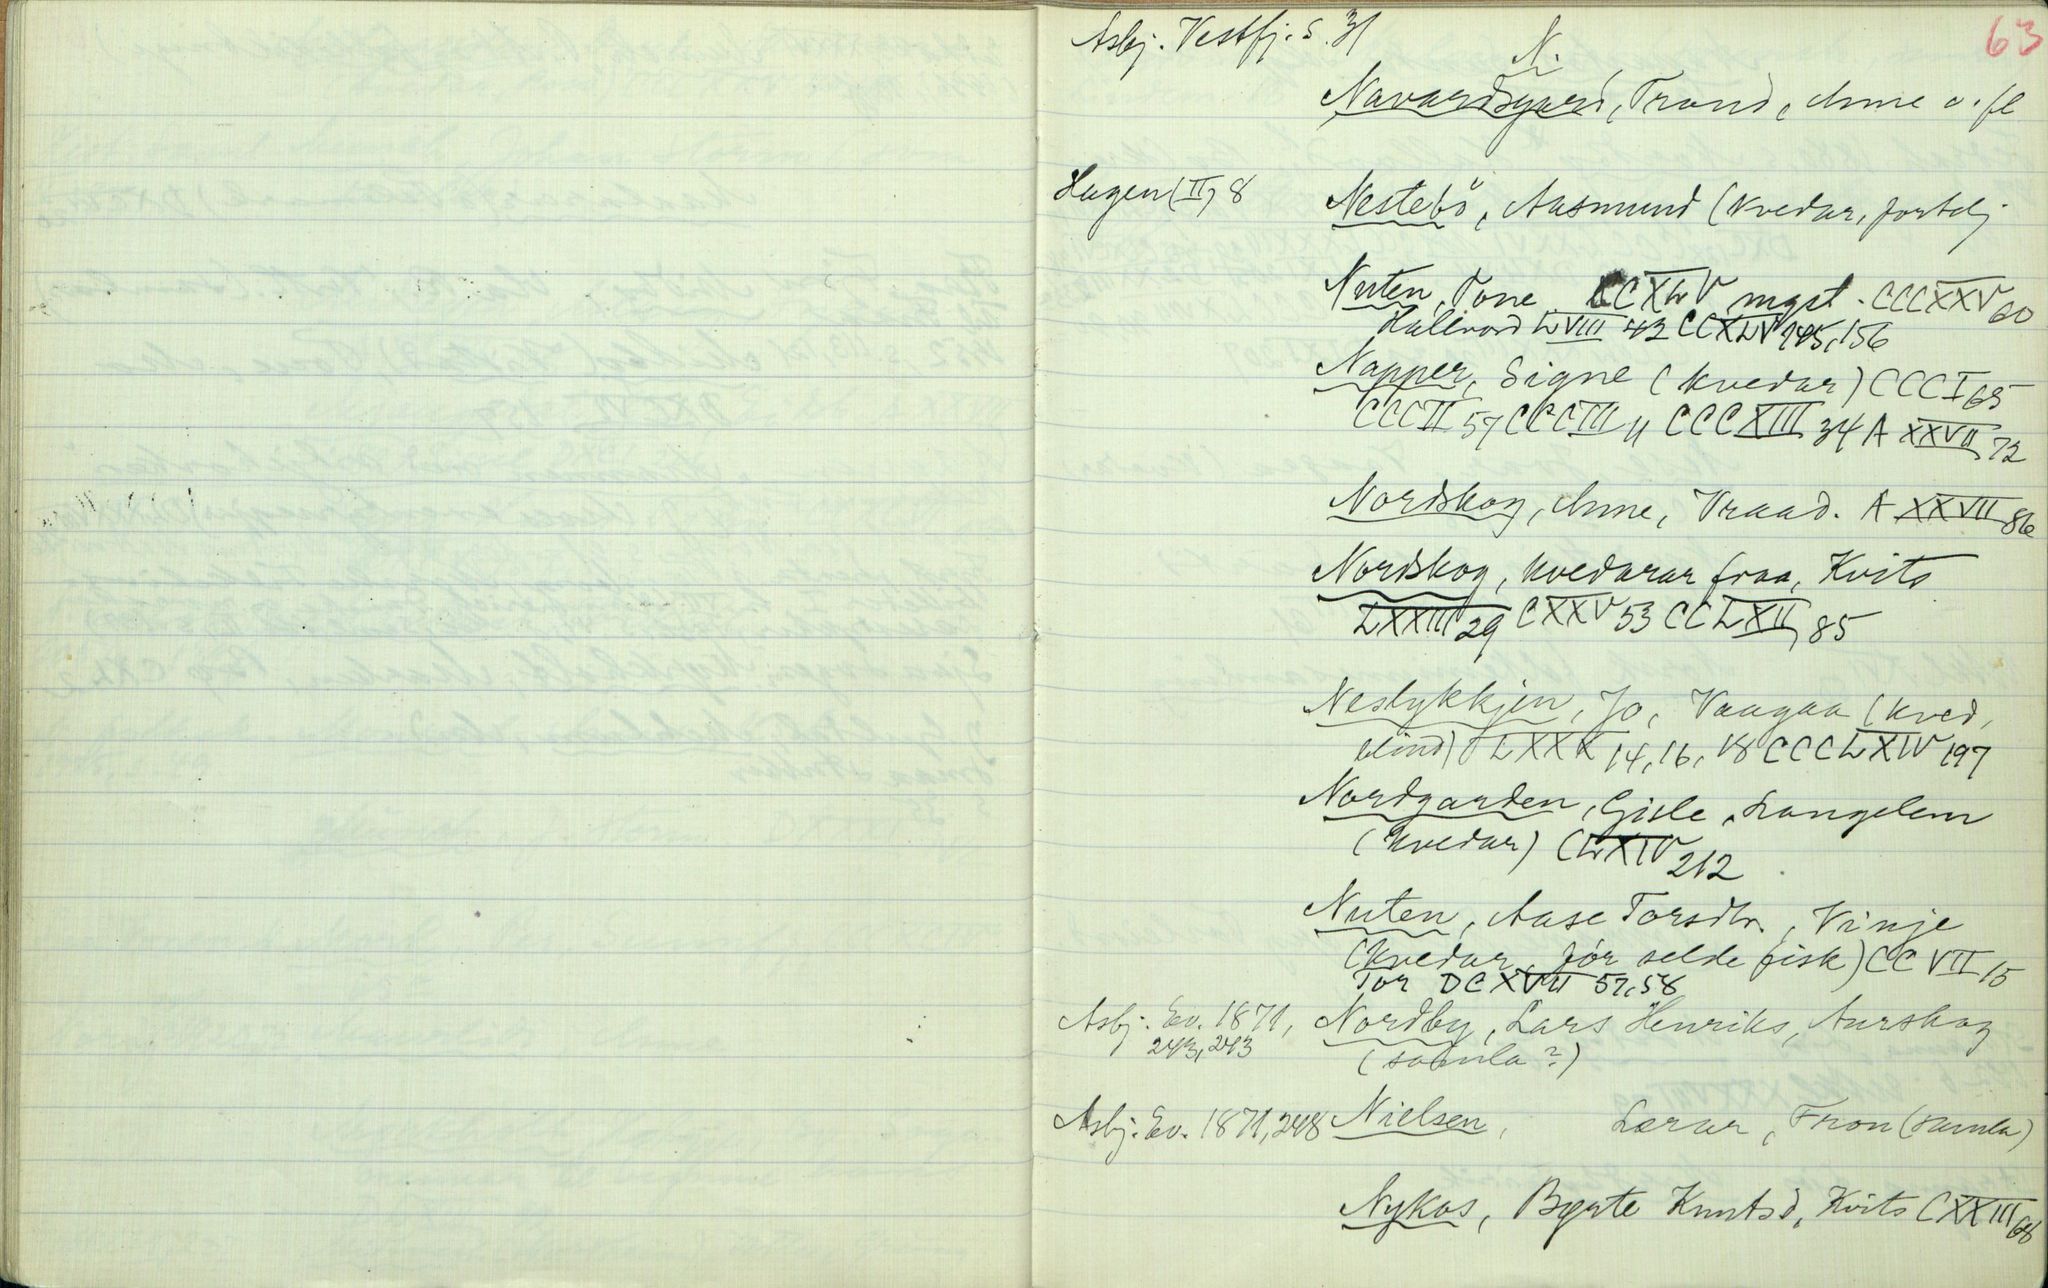 63
Asbj. Vestfj. S. 31
N.
Navardsgard, Trond, Anne o. fl
Hagen (II) 8 Nestebö, Aasmund (kvedar, fortelj
Nuten, Tone CCXLV mgst. CCCXXV 60
Hallvard LVIII 42 CCXLV 145, 156
Napper, Signe (kvedar) CCCI 65
CCCII 57 CCCIII 11 CCCXIII 34 A XXVII 72
Nordskog, Anne, Vraad. A XXVII 86
Nordskog, kvedarar fraa, Kvits
LXXIII 29 CXXV 53 CCLXII, 85
Neslykkjen, Jo, Vaagaa (kved,
blind) LXXX 14, 16, 18 CCCLXIV 197
Nordgarden, Gisle, Srangelem
(kvedar) CLXIV 212
Nuten, Aase Torsdtr., Vinje
(kvedar, för selde fisk) CCVII 15
Tor DCXVII 57, 58
Asbj. Ev. 1871, Nordby, Lars Henriks, Aurskog
243, 243 (samla?)
Asbj. Ev. 1871, 248 Nielsen, Lærar, Fron (samla)
Nykos, Bgrte Knutsd, Kvits CXXIII 68